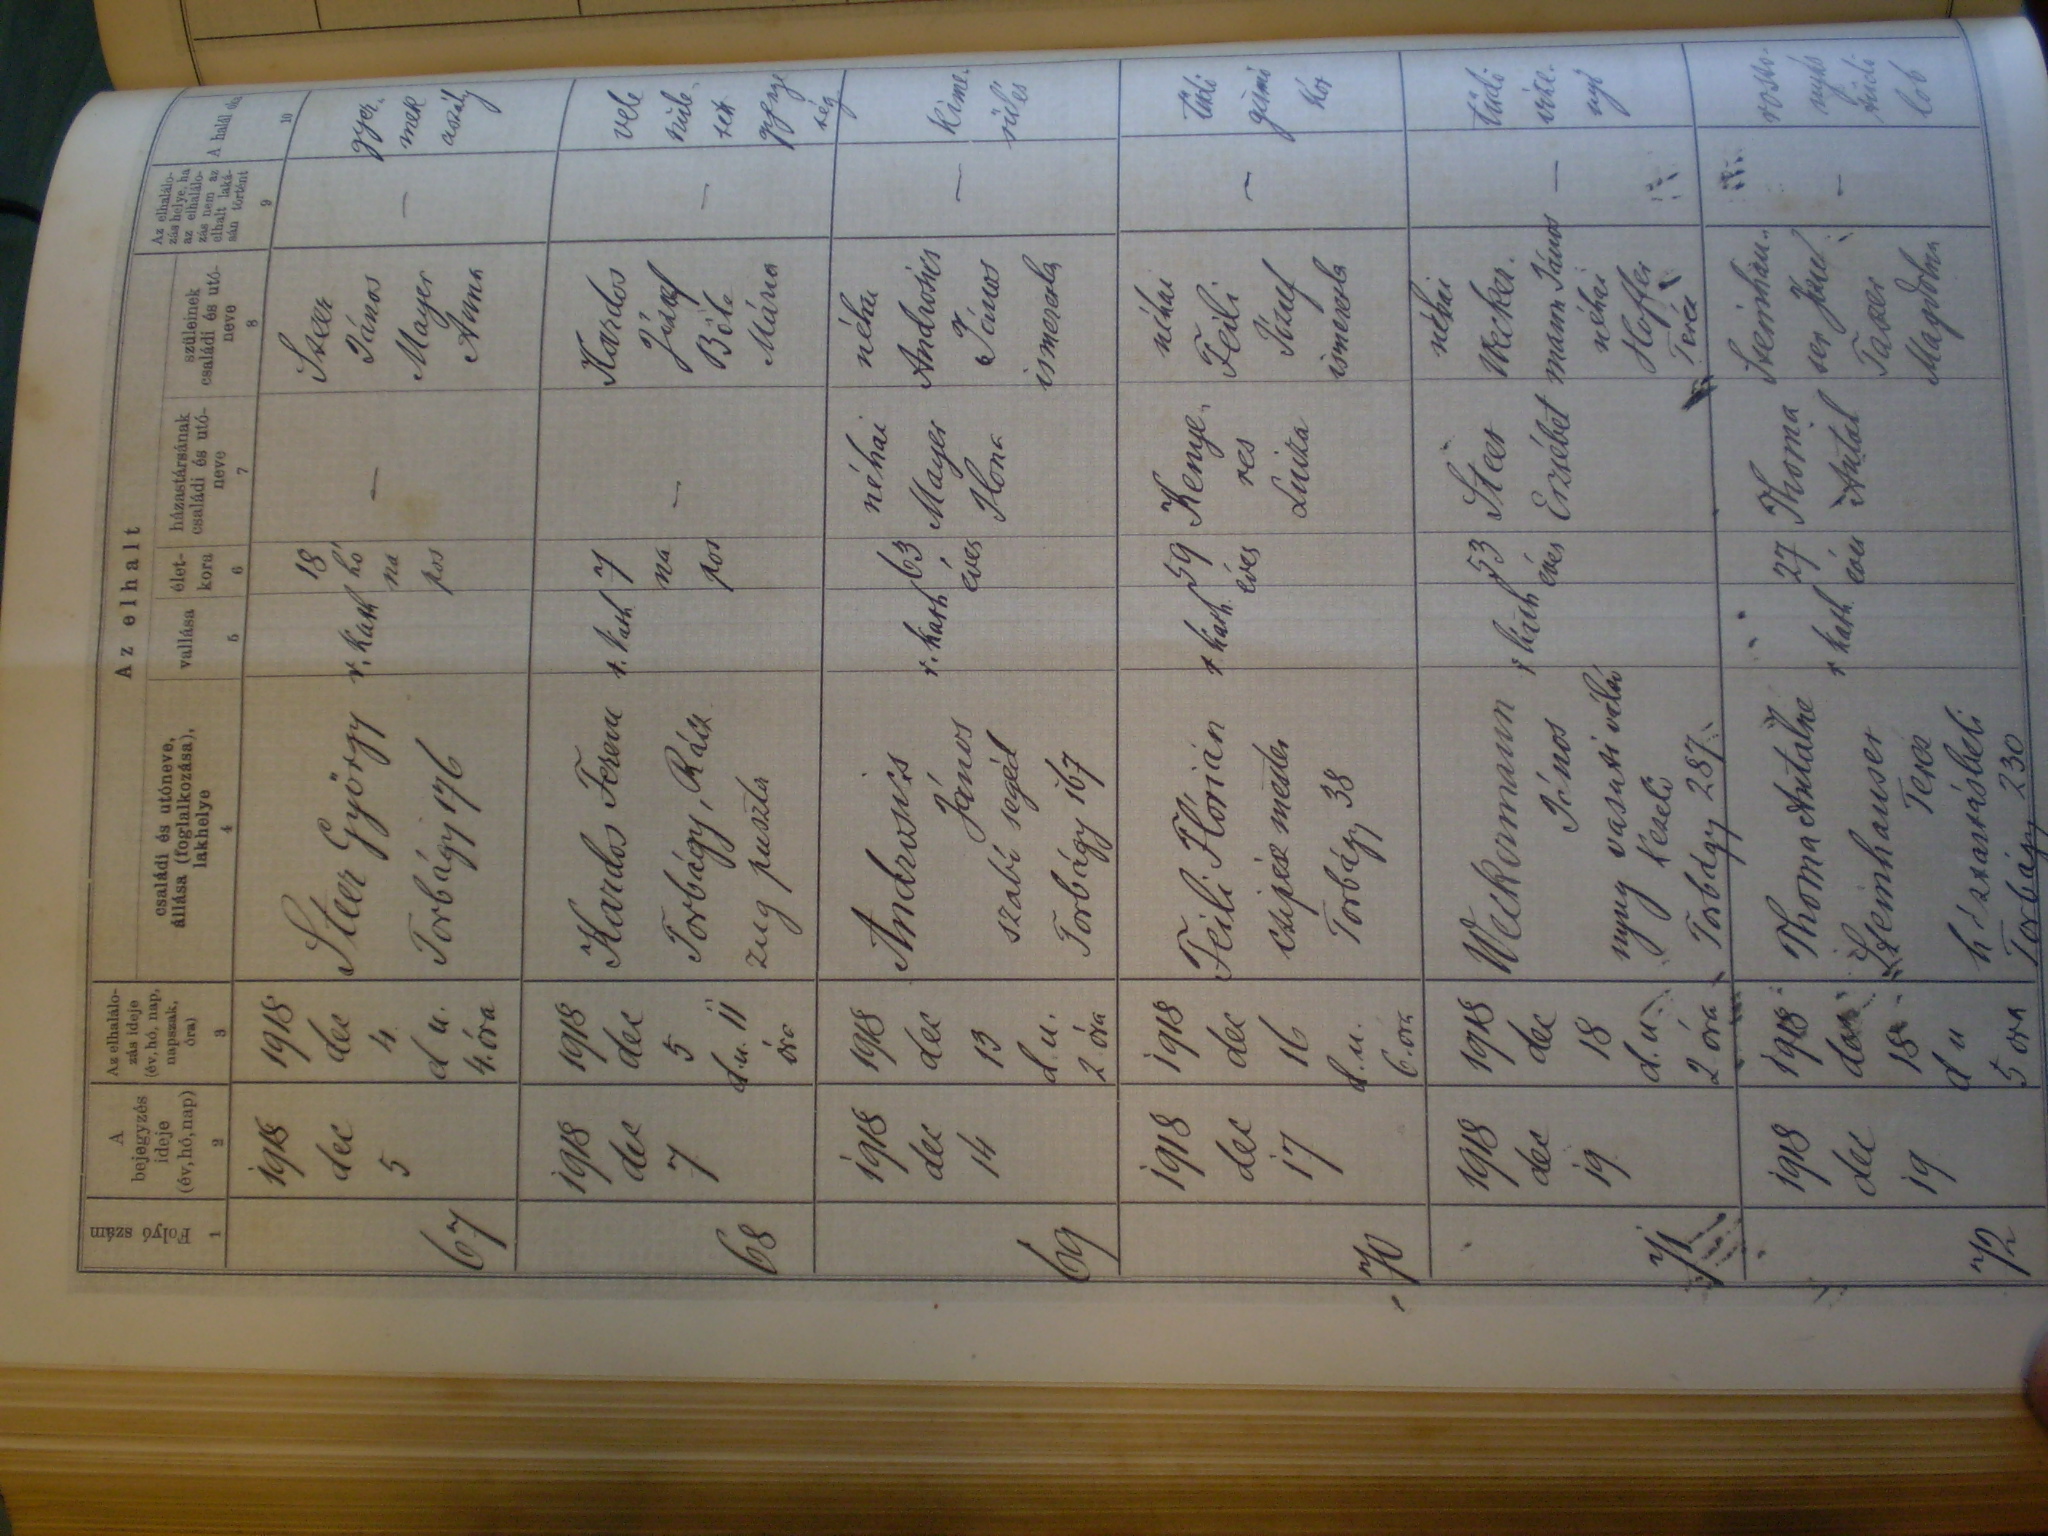 Az elhalt
Folyó szám
A bejegyzés ideje (év, hó, nap)
Az elhalálo-
zás ideje
(év, hó, nap,
napszak,
óra)
családi és utóneve,
állása (foglalkozása),
lakhelye
vallása
élet-
kora
házastársának
családi és utó-
neve
szüleinek
családi és utó-
neve
Az elhalálo-
zás helye, ha
az elhalálo-
zás nem az
elhalt laká-
sán történt
A halál oka
1
2
3
4
5
6
7
8
9
10
67
1918
dec
5
1918
dec
4
d. u.
4. óra
Steer György
Torbágy 176
r. kath
18
hó
na
pos
—
Steer
János
Mayer
Anna
—
gyer-
mek
aszály
68
1918
dec
7
1918
dec
5
d. u. 11
óra
Kardos Ferenc
Torbágy, Rácz
zug puszta
r. kath
7
na
pos
—
Kardos
József
Mária
—
vele
szüle-
tett
gyenge
ség
69
1918
dec
14
1918
dec
13
d. u.
2 óra
János
szabó segéd
Torbágy 167
r. kath
63
éves
néhai
Mayer
Ilona
János
—
kime-
rülés
70
1918
dec
17
1918
dec
16
d. u.
6. óra
Feili Flórián
czipész mester
Torbágy 38
r kath.
59
éves
Kenye-
res
néhai
Feili
József
—
tüdő
gümő
kór
71
1918
dec
19
1918
dec
18
d. u.
2 óra
Weckermann
János
nyug vasuti váltó
kezelő
Torbágy 287
53
éves
Steer
Erzsébet
néhai
Wecker-
mann János
néhai
Hoffer
Teréz
—
tüdő
vize-
nyő
72
1918
dec
19
1918
dec
18
d u
5 óra
Thoma Antalné
Steinhauser
Teréz
háztartásbeli
Torbágy 230
r kath.
27
éves
Thoma
Antal
Steinhau-
ser Jenő
Taxer
Magdolna
—
lob